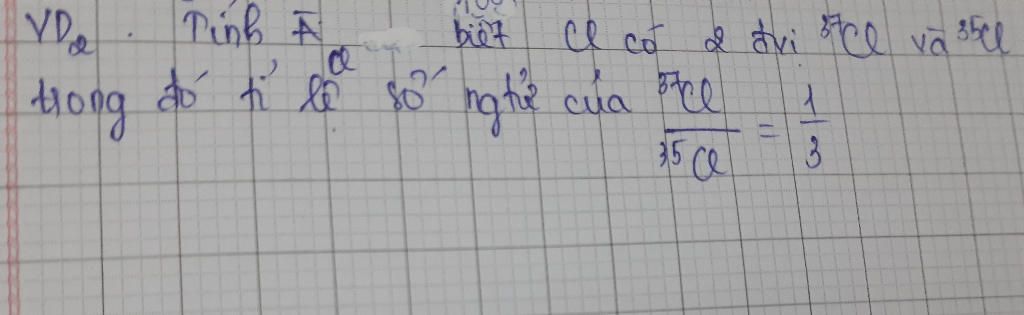 VD₂. Tính Ā Cl biết Cl có 2 đvị ³⁷Cl và ³⁵Cl
trong đó tỉ lệ số ngtử của ³⁷Cl / ³⁵Cl = 1/3